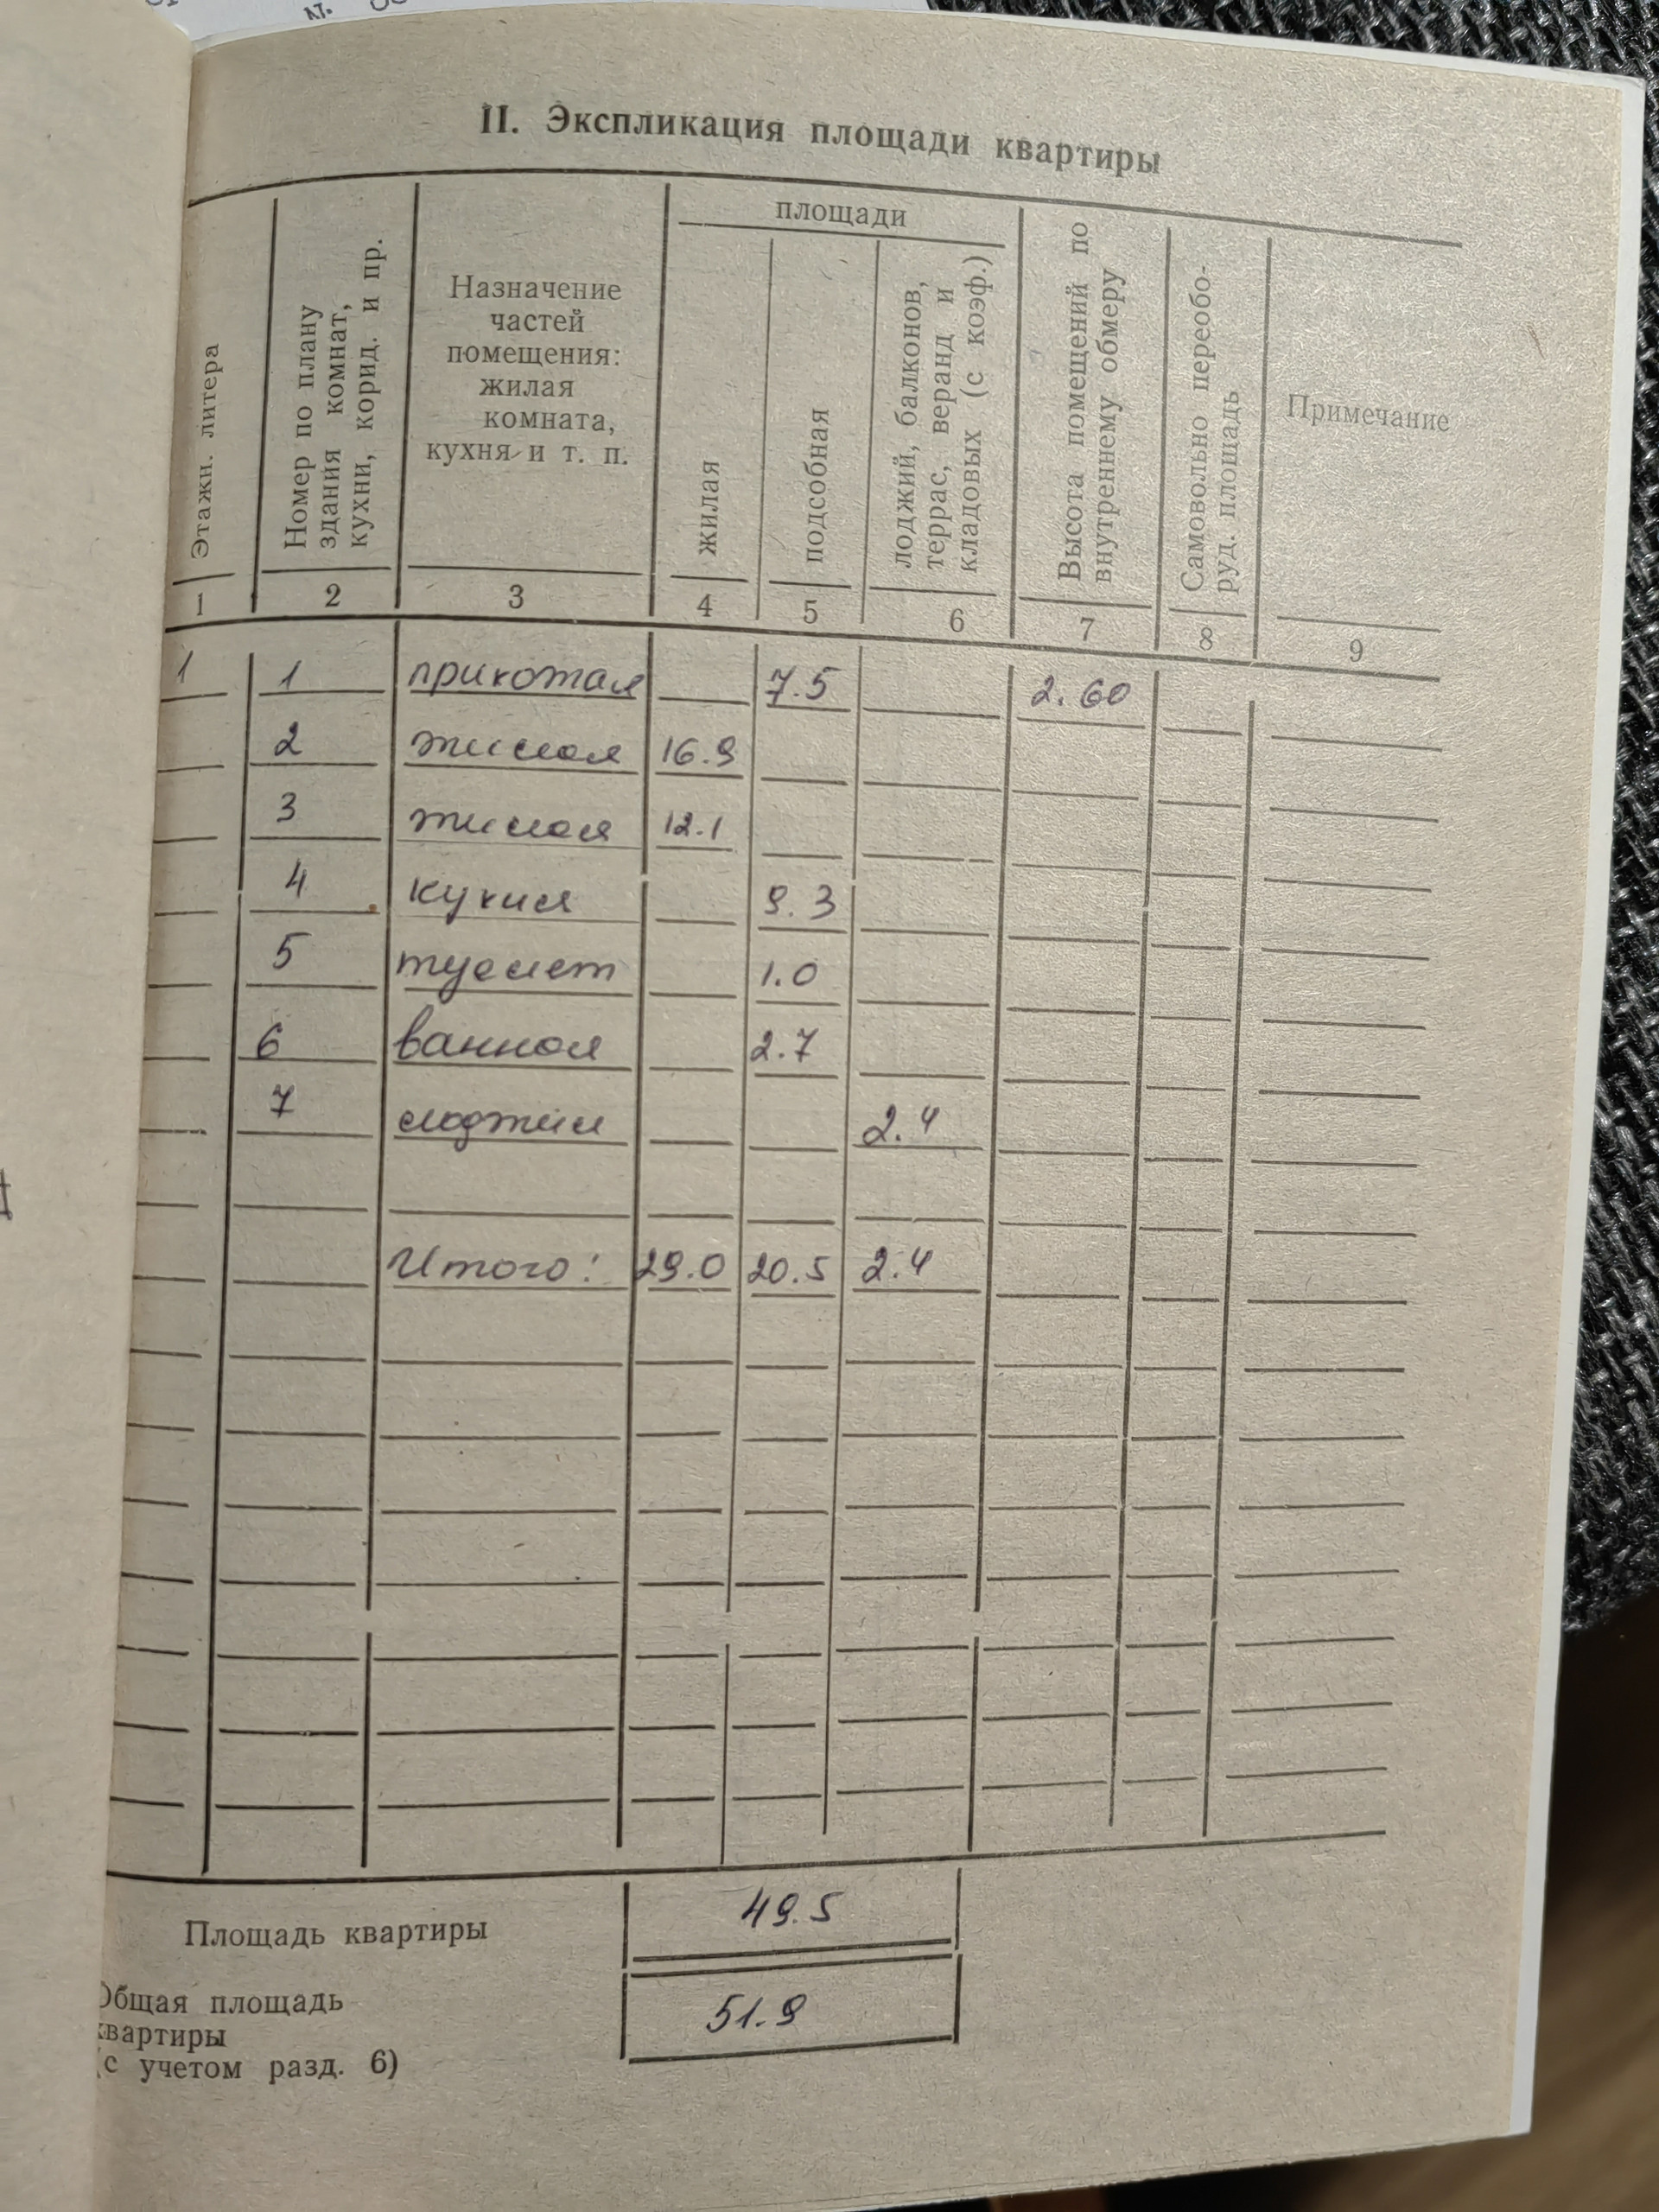 II. Экспликация площади квартиры
площади
Этажн. литера
Номер по плану
здания комнат,
кухни, корид. и пр.
Назначение
частей
помещения:
жилая
комната,
кухня и т. п.
жилая
подсобная
лоджий, балконов,
террас, веранд и
кладовых (с коэф.)
Высота помещений по
внутреннему обмеру
Самовольно переобо-
руд. площадь
Примечание
1 2 3 4 5 6 7 8 9
1 1 прихожая 7.5 2.60
2 жилая 16.9
3 жилая 12.1
4 кухня 9.3
5 туалет 1.0
6 ванная 2.7
7 лоджия 2.4
Итого: 29.0 20.5 2.4
Площадь квартиры 49.5
Общая площадь
квартиры
(с учетом разд. 6) 51.9